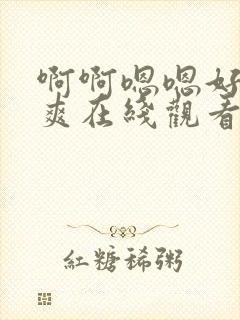 啊啊嗯嗯好
爽在綫觀看
紅糖稀粥